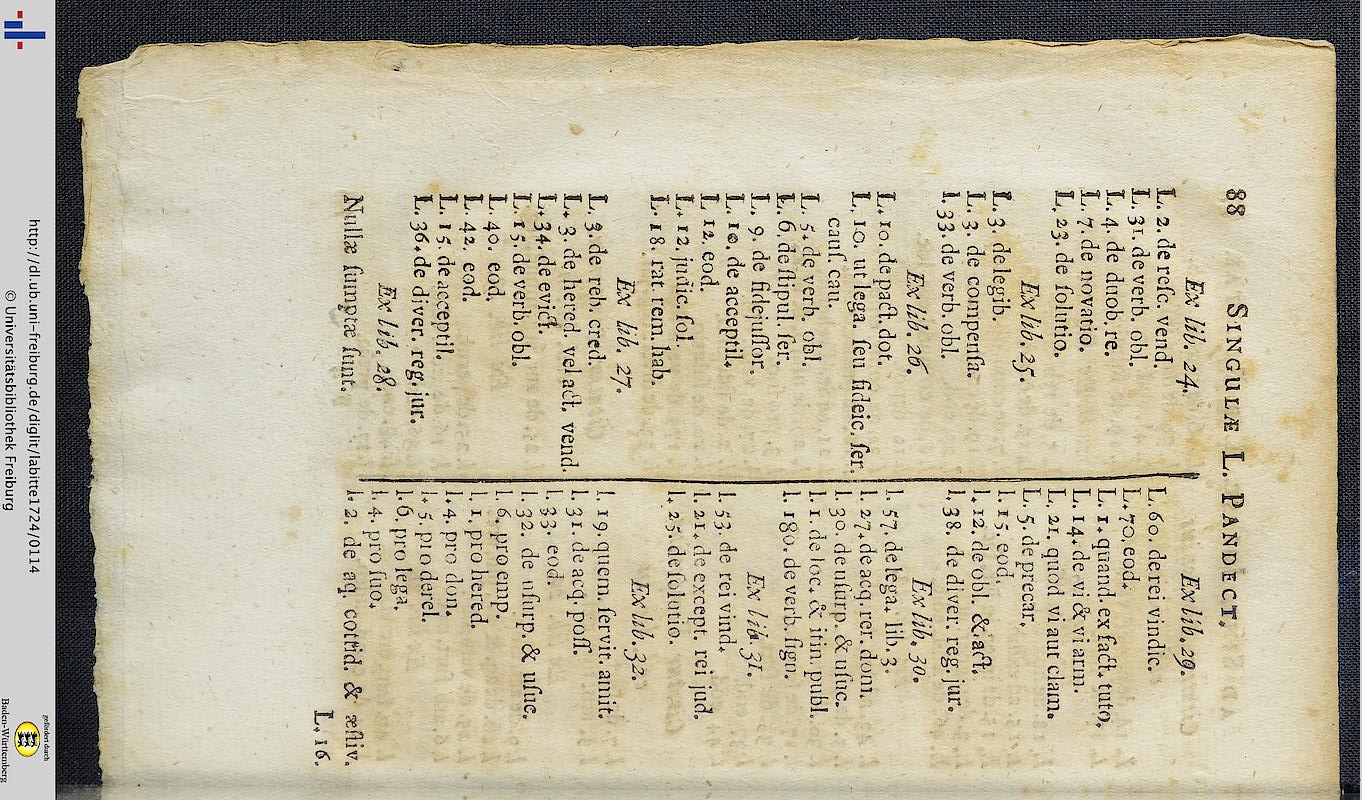 88 SINGULÆ L. PANDECT.
Ex lib. 24.
L. 2. de reſc. vend.
L. 31. de verb. obl.
L. 4. de duob. re.
L. 7. de novatio.
L. 23. de ſolutio.
Ex lib. 25.
L. 3. de legib.
L. 3. de compenſa.
l. 33. de verb. obl.
Ex lib. 26.
L. 10. de pact. dot.
L. 10. ut lega. ſeu fideic. ſer.
cauſ. cau.
L. 5. de verb. obl.
L. 6. de ſtipul. ſer.
L. 9. de fidejuſſor.
L. 10. de acceptil.
L. 12. eod.
L. 12. judic. ſol.
L. 18. rat. rem. hab.
Ex lib. 27.
L. 3. de reb. cred.
L. 3. de hered. vel act. vend.
L. 34. de evict.
L. 15. de verb. obl.
L. 40. eod.
L. 42. eod.
L. 15. de acceptil.
L. 36. de diver. reg. jur.
Ex lib. 28.
Nullæ ſumptæ ſunt.
Ex lib. 29.
L. 60. de rei vindic.
L. 70. eod.
L. 1. quand. ex fact. tuto.
L. 14. de vi & vi arm.
L. 21. quod vi aut clam.
L. 5. de precar.
l. 15. eod.
l. 12. de obl. & act.
l. 38. de diver. reg. jur.
Ex lib. 30.
l. 57. de lega. lib. 3.
l. 27. de acq. rer. dom.
l. 30. de uſurp. & uſuc.
l. 1. de loc. & itin. publ.
l. 180. de verb. ſign.
Ex lib. 31.
l. 53. de rei vind.
l. 21. de except. rei jud.
l. 25. de ſolutio.
Ex lib. 32.
l. 19. quem. ſervit. amit.
l. 31. de acq. poſſ.
l. 33. eod.
l. 32. de uſurp. & uſuc.
l. 6. pro emp.
l. 1. pro hered.
l. 4. pro don.
l. 5. pro derel.
l. 6. pro lega.
l. 4. pro ſuo.
l. 2. de aq. cottid. & æſtiv.
L. 16.
http://dl.ub.uni-freiburg.de/diglit/labitte1724/0114
© Universitätsbibliothek Freiburg
gefördert durch
Baden-Württemberg